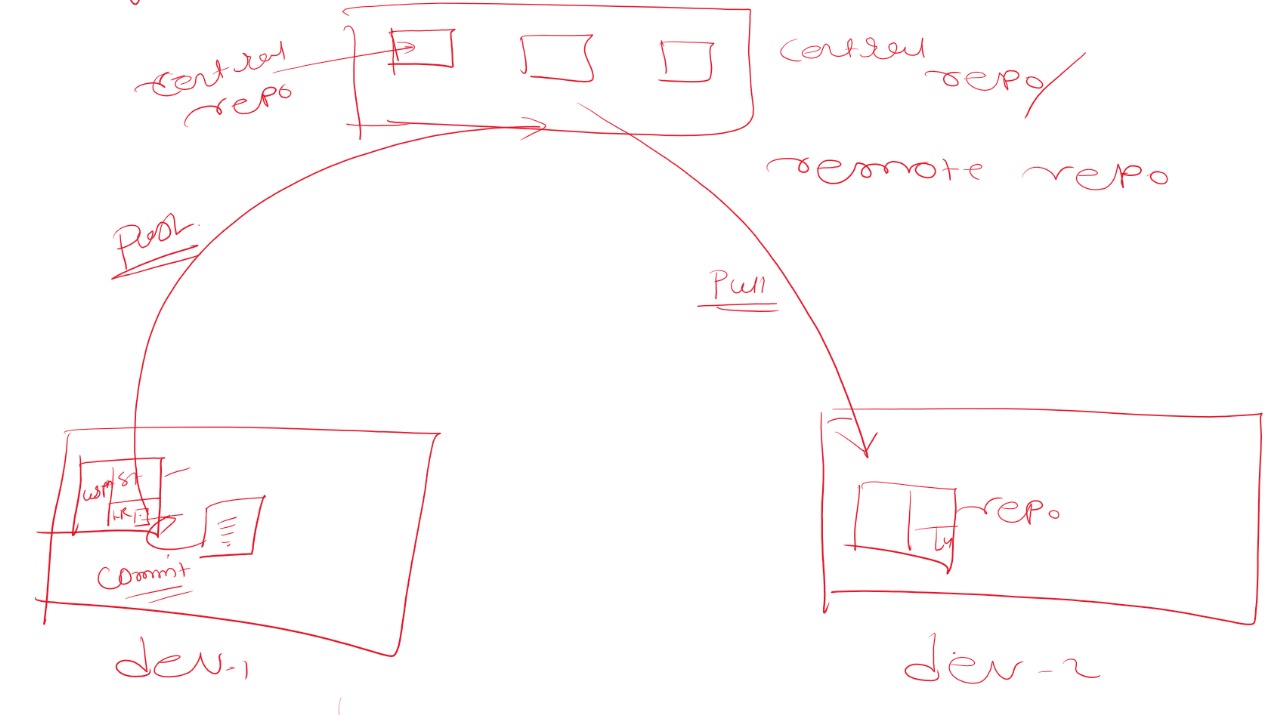 central
repo
central
repo/
remote repo
Push
Pull
LR
commit
repo
dev-1
dev-2